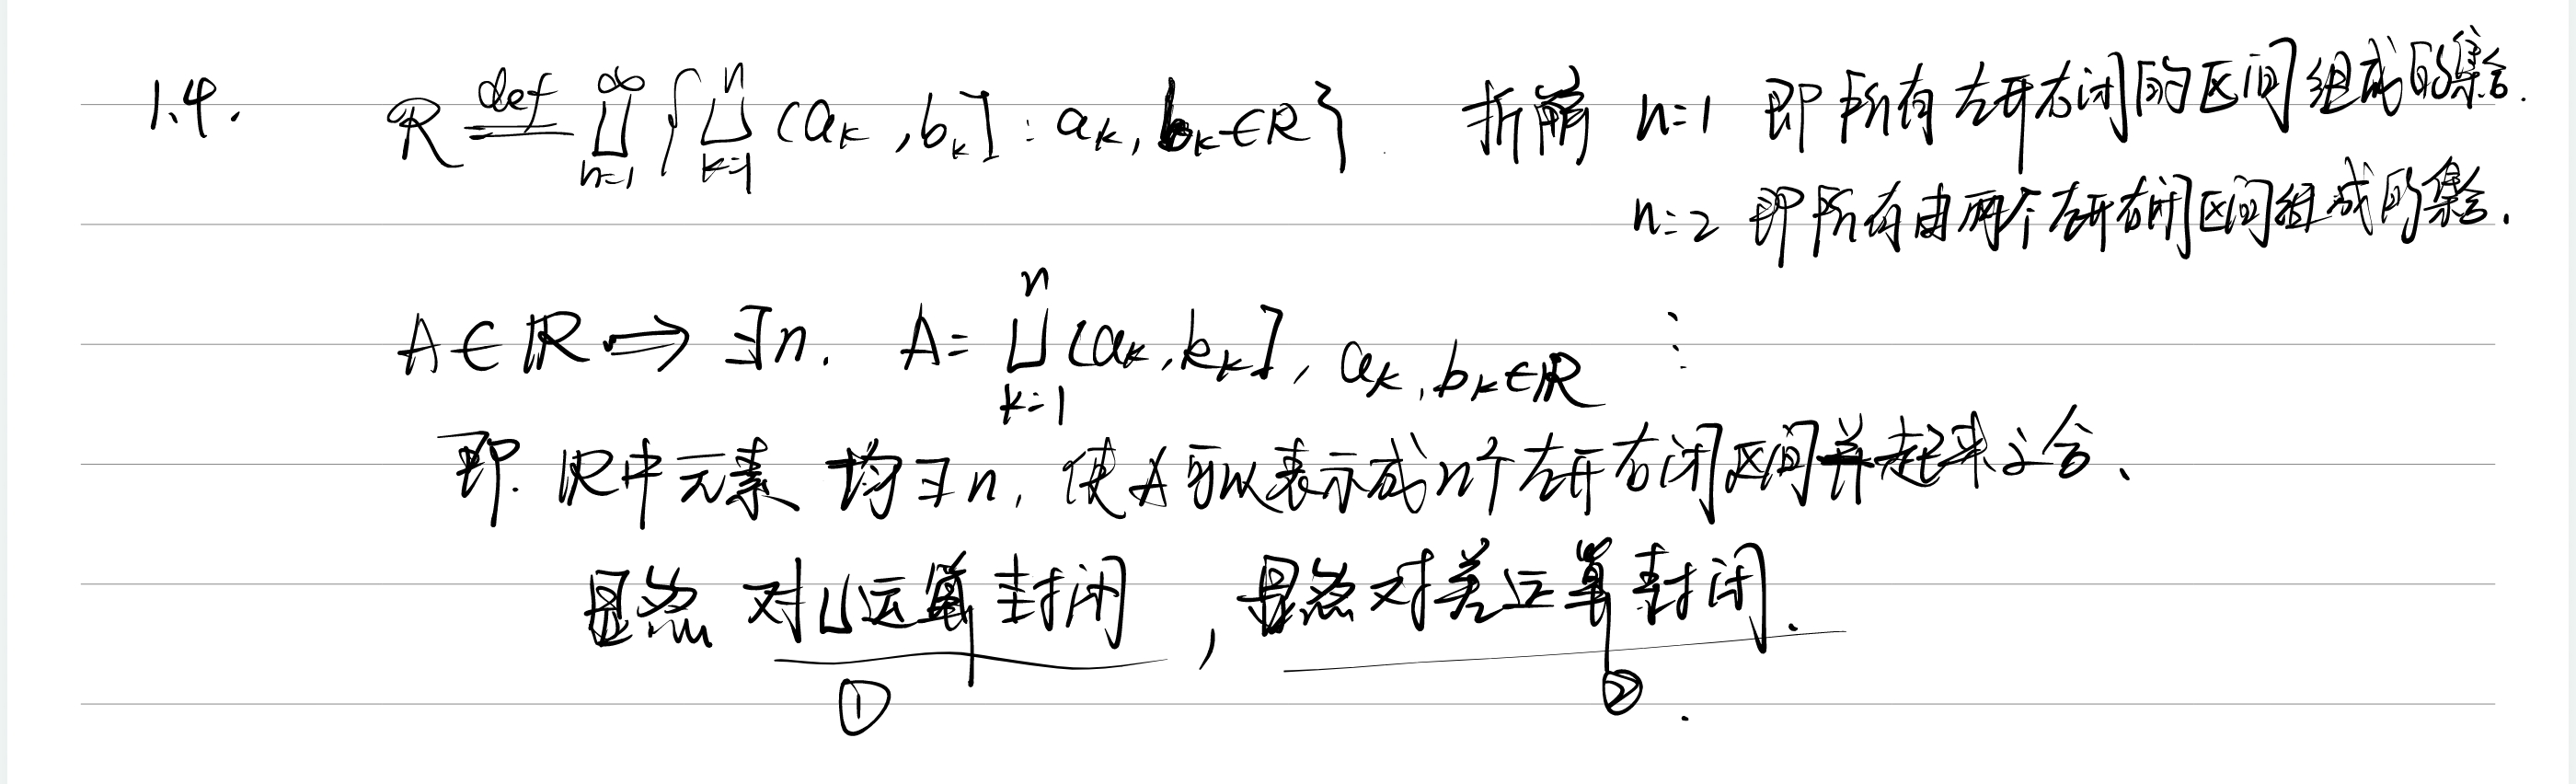 1.4. R def= ∞⋃n=1 {n⋃k=1 (aₖ, bₖ] : aₖ, bₖ∈R}. 拆解 n=1 即所有左开右闭的区间组成的集合.
n=2 即所有由两个左开右闭区间组成的集合.
A∈R ⟹ ∃n. A= n⋃k=1 (aₖ, bₖ], aₖ, bₖ∈R ⋮
即. R中元素 均∃n, 使A可以表示成n个左开右闭区间并起来之合、
显然 对∪运算封闭, 显然对差运算封闭.
① ②.